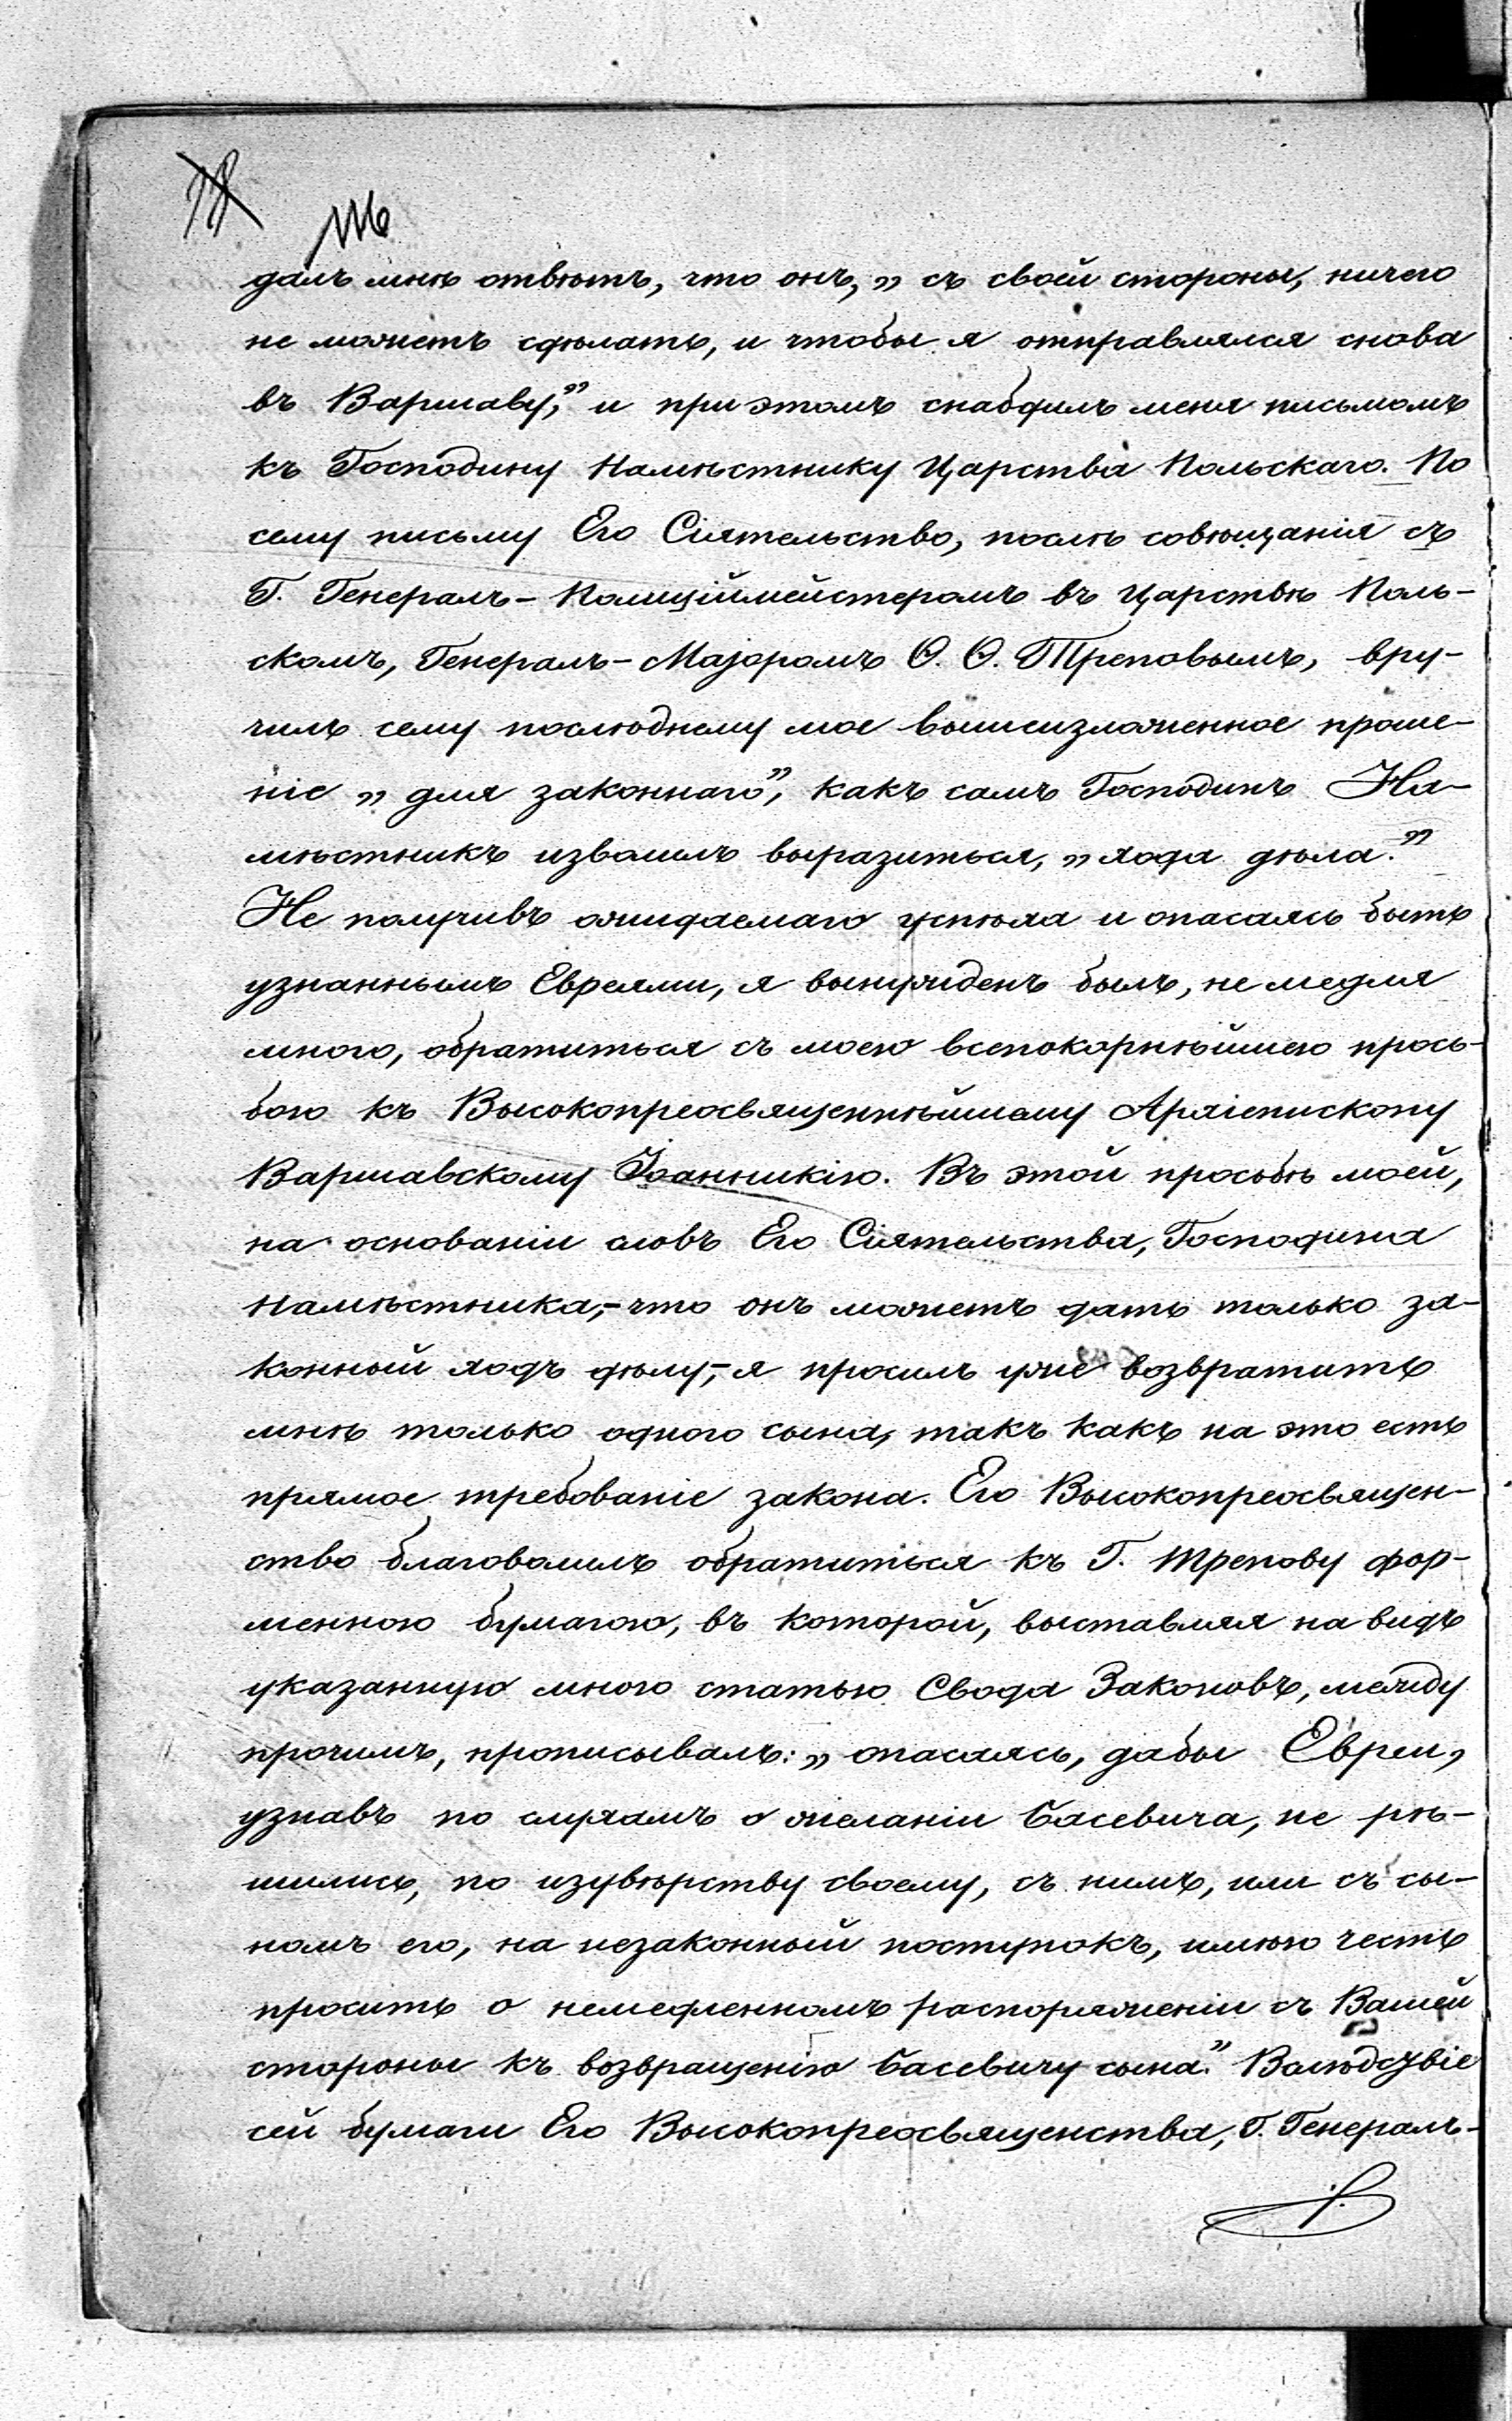 далъ мнѣ отвѣтъ, что онъ, „ съ своей стороны, ничего
не можетъ сдѣлать, и чтобы я отправлялся снова
въ Варшаву,” и при этомъ снабдилъ меня письмомъ
къ Господину Намѣстнику Царства Польскаго. По
сему письму Его Сіятельство, послѣ совѣщанія съ
Г. Генералъ-Полиціймейстеромъ въ Царствѣ Поль-
скомъ, Генералъ-Маіоромъ Ѳ. Ѳ. Треповымъ, вру-
чилъ сему послѣднему мое вышеизложенное проше-
ніе „ для законнаго”, какъ самъ Господинъ На-
мѣстникъ изволилъ выразиться, „ хода дѣла.”
Не получивъ ожидаемаго успѣха и опасаясь быть
узнаннымъ Евреями, я вынужденъ былъ, не медля
много, обратиться съ моею всепокорнѣйшею прось-
бою къ Высокопреосвященнѣйшему Архіепископу
Варшавскому Іоанникію. Въ этой просьбѣ моей,
на основаніи словъ Его Сіятельства, Господина
Намѣстника,- что онъ можетъ дать только за-
конный ходъ дѣлу,- я просилъ уже возвратить
мнѣ только одного сына, такъ какъ на это есть
прямое требованіе закона. Его Высокопреосвящен-
ство благоволилъ обратиться къ Г. Трепову фор-
менною бумагою, въ которой, выставляя на видъ
указанную мною статью Свода Законовъ, между
прочимъ, прописывалъ: „ опасаясь, дабы Евреи,
узнавъ по слухамъ о желаніи Басевича, не рѣ-
шились, по изувѣрству своему, съ нимъ, или съ сы-
номъ его, на незаконный поступокъ, имѣю честь
просить о немедленномъ распоряженіи съ Вашей
стороны къ возвращенію Басевичу сына.” Вслѣдствіе
сей бумаги Его Высокопреосвященства, Г. Генералъ-